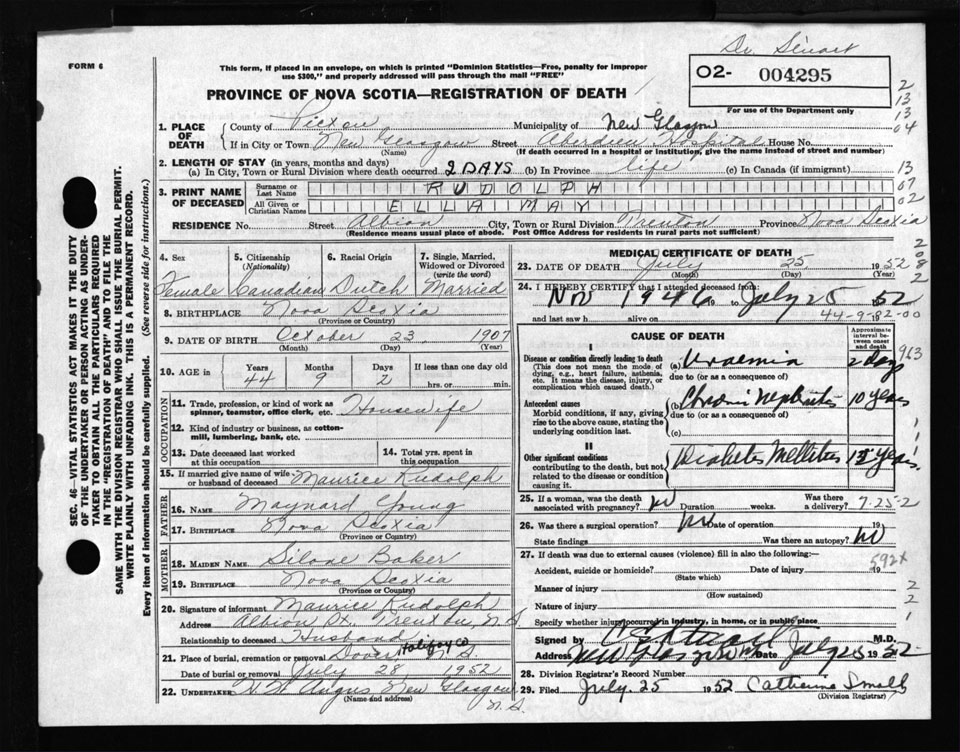 FORM 6
This form, if placed in an envelope, on which is printed "Dominion Statistics—Free, penalty for improper
use $300," and properly addressed will pass through the mail "FREE"
Dr.
02- 004295
For use of the Department only
PROVINCE OF NOVA SCOTIA—REGISTRATION OF DEATH
2
13
13
04
1. PLACE OF DEATH County of Pictou Municipality of New Glasgow
If in City or Town New Glasgow Street Aberdeen Hospital House No.
(Name) (If death occurred in a hospital or institution, give the name instead of street and number)
2. LENGTH OF STAY (in years, months and days)
(a) In City, Town or Rural Division where death occurred 2 DAYS (b) In Province life (c) In Canada (if immigrant)
13
07
02
3. PRINT NAME OF DECEASED Surname or Last Name RUDOLPH
All Given or Christian Names ELLA MAY
RESIDENCE No. Street Albion City, Town or Rural Division Trenton Province Nova Scotia
(Residence means usual place of abode. Post Office Address for residents in rural parts not sufficient)
4. Sex Female
5. Citizenship (Nationality) Canadian
6. Racial Origin Dutch
7. Single, Married, Widowed or Divorced (write the word) Married
8. BIRTHPLACE Nova Scotia
(Province or Country)
9. DATE OF BIRTH October 23 1907
(Month) (Day) (Year)
10. AGE in Years 44 Months 9 Days 2 If less than one day old hrs. or min.
OCCUPATION
11. Trade, profession, or kind of work as spinner, teamster, office clerk, etc. Housewife
12. Kind of industry or business, as cotton-mill, lumbering, bank, etc.
13. Date deceased last worked at this occupation
14. Total yrs. spent in this occupation
15. If married give name of wife or husband of deceased Maurice Rudolph
FATHER
16. Name Maynard Young
17. Birthplace Nova Scotia
(Province or Country)
MOTHER
18. MAIDEN NAME Baker
19. Birthplace Nova Scotia
(Province or Country)
20. Signature of informant Maurice Rudolph
Address Albion St., Trenton, N.S.
Relationship to deceased Husband
21. Place of burial, cremation or removal Dover Halifax Co N.S.
Date of burial or removal July 28 1952
22. UNDERTAKER Angus New Glasgow
(Name and address) N.S.
MEDICAL CERTIFICATE OF DEATH
23. DATE OF DEATH July 25 1952
(Month) (Day) (Year)
2
0
8
2
24. I HEREBY CERTIFY that I attended deceased from:
Nov 1946 19 to July 25 1952
and last saw h alive on 19
44-9-82-00
CAUSE OF DEATH
Approximate interval between onset and death
I
Disease or condition directly leading to death
(This does not mean the mode of dying, e.g., heart failure, asthenia, etc. It means the disease, injury, or complication which caused death.)
(a) Uraemia 2 days
963
due to (or as a consequence of)
Antecedent causes
Morbid conditions, if any, giving rise to the above cause, stating the underlying condition last.
(b) Chronic Nephritis 10 years
due to (or as a consequence of)
(c)
II
Other significant conditions
contributing to the death, but not related to the disease or condition causing it.
Diabetes Mellitus years
25. If a woman, was the death associated with pregnancy? No Duration weeks. Was there a delivery? 7-25-2
26. Was there a surgical operation? No Date of operation 19
State findings Was there an autopsy? No
27. If death was due to external causes (violence) fill in also the following:
592x
Accident, suicide or homicide? Date of injury 19
(State which)
Manner of injury
(How sustained)
Nature of injury
Specify whether injury occurred in industry, in home, or in public place
Signed by M.D.
Address New Glasgow Date July 25 1952
28. Division Registrar's Record Number
29. Filed July 25 1952 Catherine Small
(Division Registrar)
SEC. 46—VITAL STATISTICS ACT MAKES IT THE DUTY
OF THE UNDERTAKER OR PERSON ACTING AS UNDER-
TAKER TO OBTAIN ALL THE PARTICULARS REQUIRED
IN THE "REGISTRATION OF DEATH" AND TO FILE THE
SAME WITH THE DIVISION REGISTRAR WHO SHALL ISSUE THE BURIAL PERMIT.
WRITE PLAINLY WITH UNFADING INK. THIS IS A PERMANENT RECORD.
Every item of information should be carefully supplied. (See reverse side for instructions.)